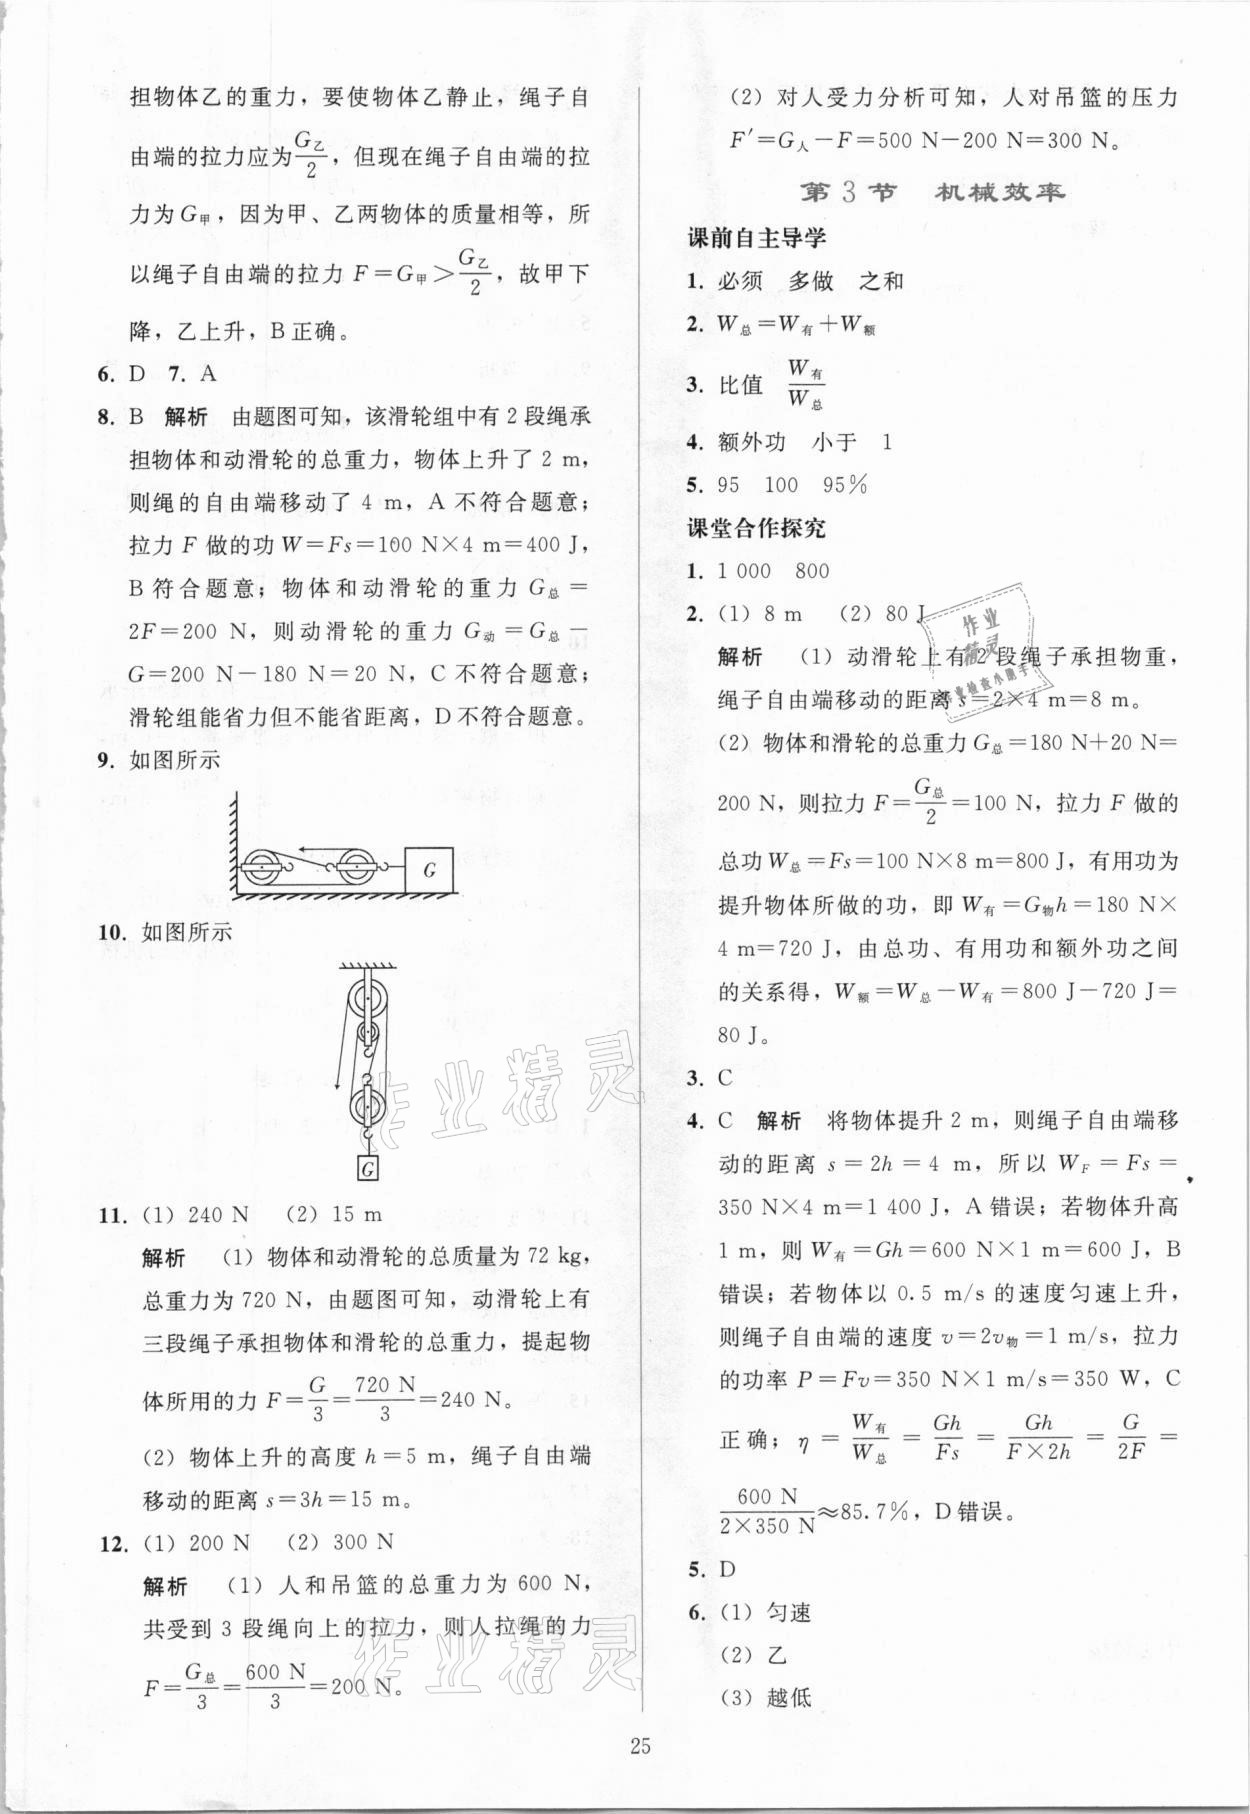 担物体乙的重力，要使物体乙静止，绳子自
由端的拉力应为G乙/2，但现在绳子自由端的拉
力为G甲，因为甲、乙两物体的质量相等，所
以绳子自由端的拉力 F＝G甲＞G乙/2，故甲下
降，乙上升，B正确。
6. D 7. A
8. B 解析 由题图可知，该滑轮组中有 2 段绳承
担物体和动滑轮的总重力，物体上升了 2 m，
则绳的自由端移动了 4 m，A 不符合题意；
拉力 F 做的功 W＝Fs＝100 N×4 m＝400 J，
B 符合题意；物体和动滑轮的重力 G总＝
2F＝200 N，则动滑轮的重力 G动＝G总－
G＝200 N－180 N＝20 N，C 不符合题意；
滑轮组能省力但不能省距离，D 不符合题意。
9. 如图所示
G
10. 如图所示
G
11. (1) 240 N (2) 15 m
解析 (1) 物体和动滑轮的总质量为 72 kg，
总重力为 720 N，由题图可知，动滑轮上有
三段绳子承担物体和滑轮的总重力，提起物
体所用的力 F＝G/3＝720 N/3＝240 N。
(2) 物体上升的高度 h＝5 m，绳子自由端
移动的距离 s＝3h＝15 m。
12. (1) 200 N (2) 300 N
解析 (1) 人和吊篮的总重力为 600 N，
共受到 3 段绳向上的拉力，则人拉绳的力
F＝G总/3＝600 N/3＝200 N。
(2) 对人受力分析可知，人对吊篮的压力
F′＝G人－F＝500 N－200 N＝300 N。
第 3 节 机械效率
课前自主导学
1. 必须 多做 之和
2. W总＝W有＋W额
3. 比值 W有/W总
4. 额外功 小于 1
5. 95 100 95%
课堂合作探究
1. 1 000 800
2. (1) 8 m (2) 80 J
解析 (1) 动滑轮上有 2 段绳子承担物重，
绳子自由端移动的距离 s＝2×4 m＝8 m。
(2) 物体和滑轮的总重力 G总＝180 N＋20 N＝
200 N，则拉力 F＝G总/2＝100 N，拉力 F 做的
总功 W总＝Fs＝100 N×8 m＝800 J，有用功为
提升物体所做的功，即 W有＝G物h＝180 N×
4 m＝720 J，由总功、有用功和额外功之间
的关系得，W额＝W总－W有＝800 J－720 J＝
80 J。
3. C
4. C 解析 将物体提升 2 m，则绳子自由端移
动的距离 s＝2h＝4 m，所以 WF＝Fs＝
350 N×4 m＝1 400 J，A 错误；若物体升高
1 m，则 W有＝Gh＝600 N×1 m＝600 J，B
错误；若物体以 0.5 m/s 的速度匀速上升，
则绳子自由端的速度 v＝2v物＝1 m/s，拉力
的功率 P＝Fv＝350 N×1 m/s＝350 W，C
正确；η＝W有/W总＝Gh/Fs＝Gh/F×2h＝G/2F＝
600 N/2×350 N≈85.7%，D 错误。
5. D
6. (1) 匀速
(2) 乙
(3) 越低
作业精灵
作业精灵
作业
精灵
25